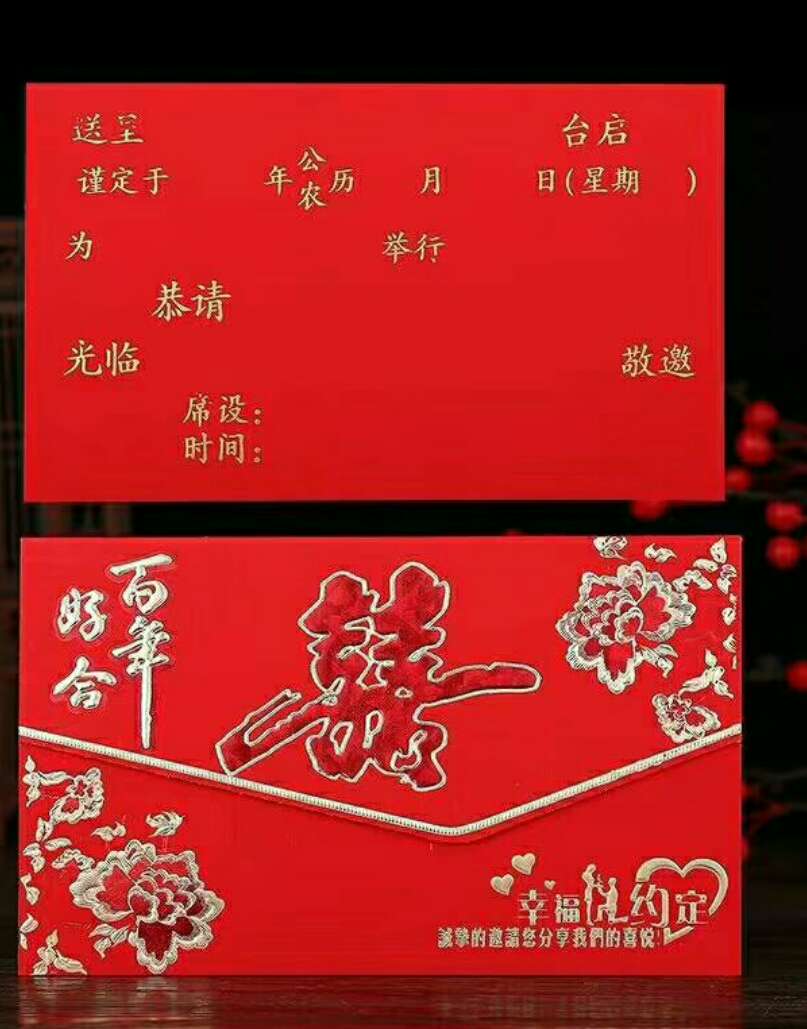 送呈 台启
谨定于 年公农历 月 日(星期 )
为 举行
恭请
光临 敬邀
席设：
时间：
百年
好合
囍
幸福 约定
誠摯的邀請您分享我們的喜悦!